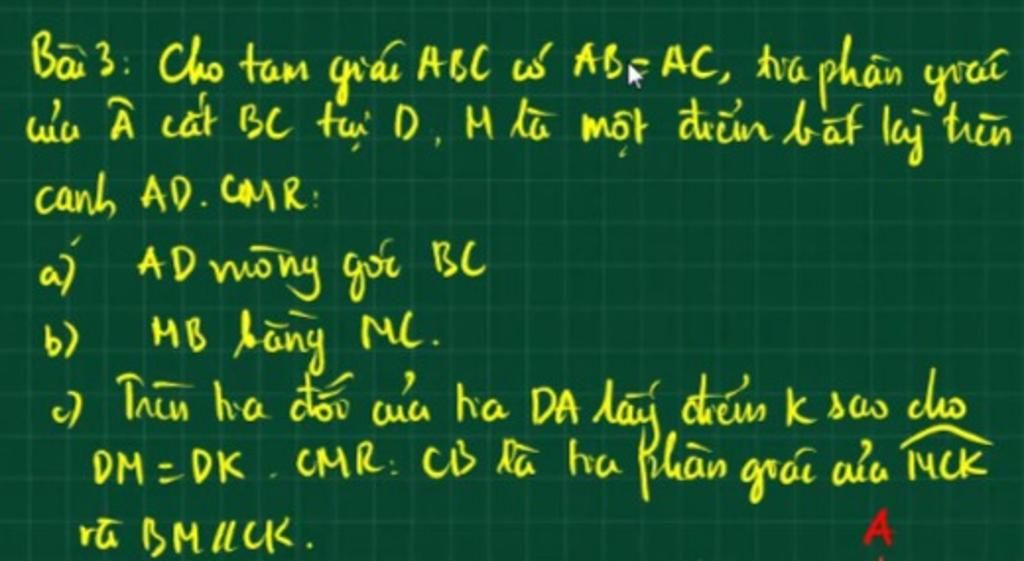 Bài 3: Cho tam giác ABC có AB = AC, tia phân giác
của Â cắt BC tại D, M là một điểm bất kỳ trên
cạnh AD. CMR:
a) AD vuông góc BC
b) MB bằng MC.
c) Trên tia đối của tia DA lấy điểm K sao cho
DM = DK. CMR: CB là tia phân giác của \widehat{MCK}
và BM // CK.
A